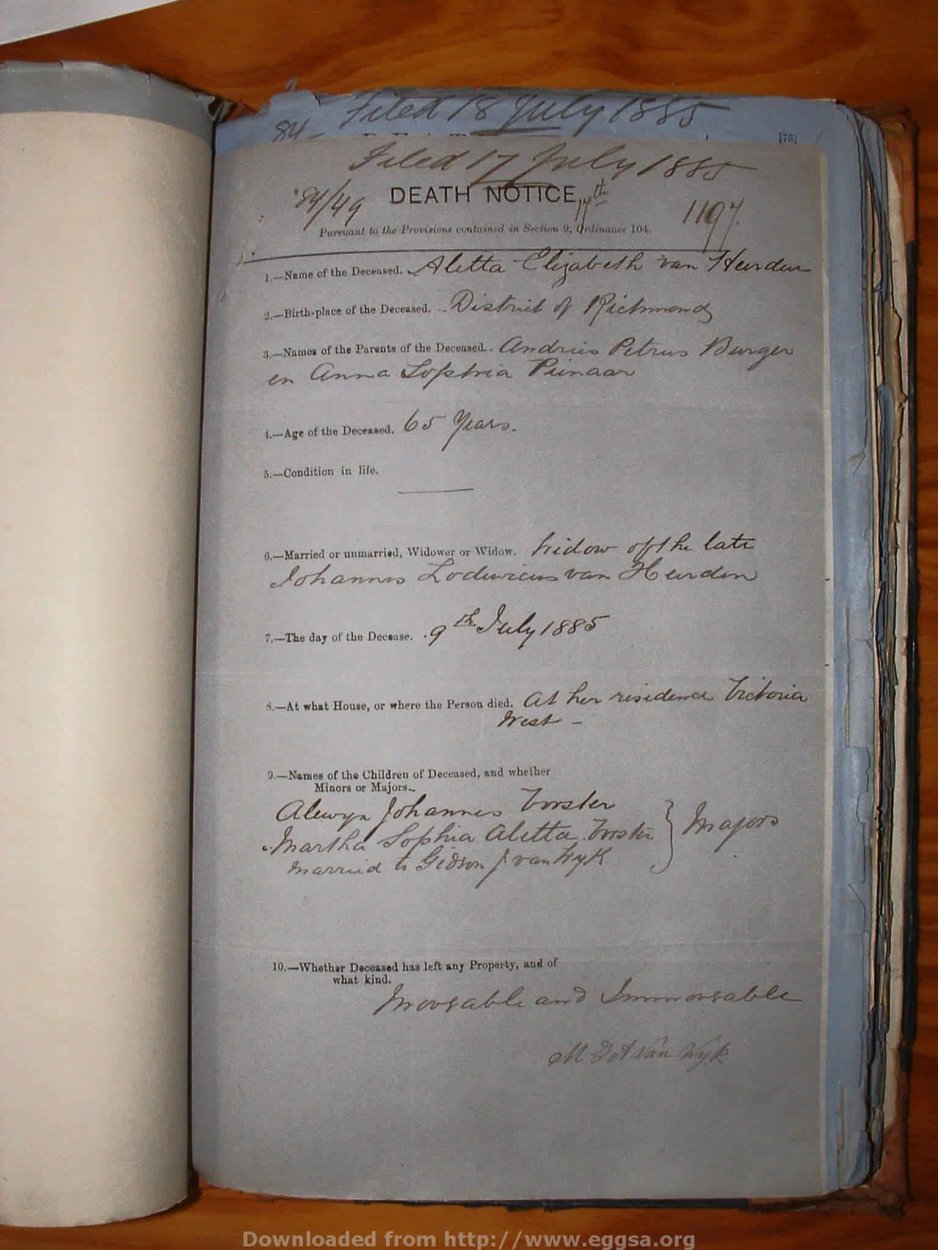 Filed 18 July 1885
84
[75]
Filed 17 July 1885
84/49 DEATH NOTICE, 17th 1197.
Pursuant to the Provisions contained in Section 9, Ordinance 104.
1.—Name of the Deceased. Aletta Elizabeth van Heerden
2.—Birth-place of the Deceased. District of Richmond
3.—Names of the Parents of the Deceased. Andries Petrus Burger
en Anna Sophia Pienaar
4.—Age of the Deceased. 65 Years.
5.—Condition in life.
6.—Married or unmarried, Widower or Widow. Widow off the late
Johannes Lodewicus van Heerden
7.—The day of the Decease. 9th July 1885
8.—At what House, or where the Person died. At her residence Victoria
West -
9.—Names of the Children of Deceased, and whether
Minors or Majors.
Alewyn Johannes Vorster
Martha Sophia Aletta Vorster } Majors
married to Gideon J van Wyk
10.—Whether Deceased has left any Property, and of
what kind.
Moveable and Immoveable
M S A van Wyk
Downloaded from http://www.eggsa.org